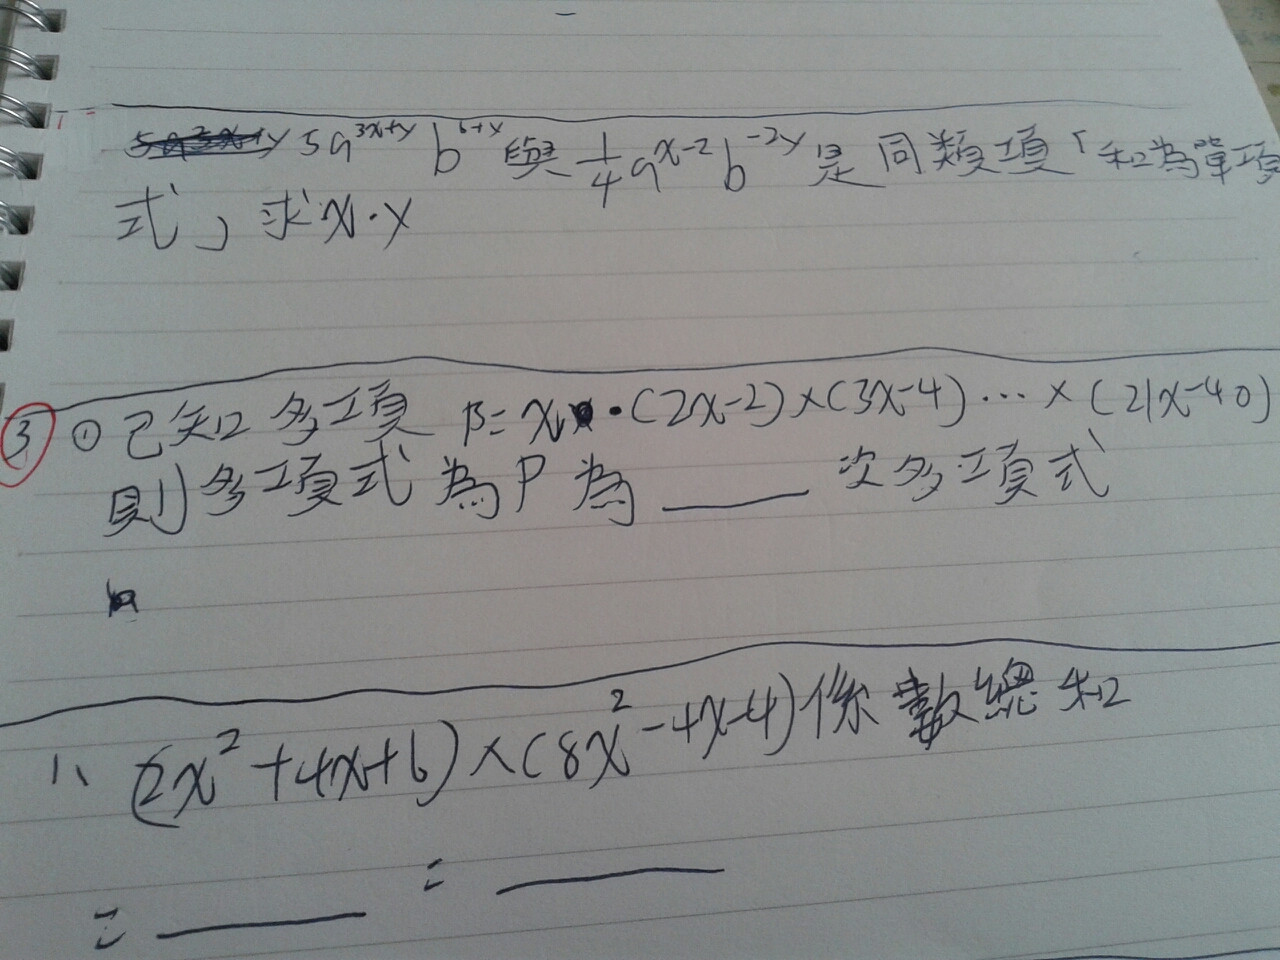 5a^{3x+y} b^{6+y} 與 \frac{1}{4}a^{x-2}b^{-2y} 是同類項「和為單項
式」求x·y
③ ① 已知多項 P=x·(2x-2)×(3x-4)···×(21x-40)
則多項式為P為____次多項式
1、(2x²+4x+6)×(8x²-4x-4)係數總和
=____=____